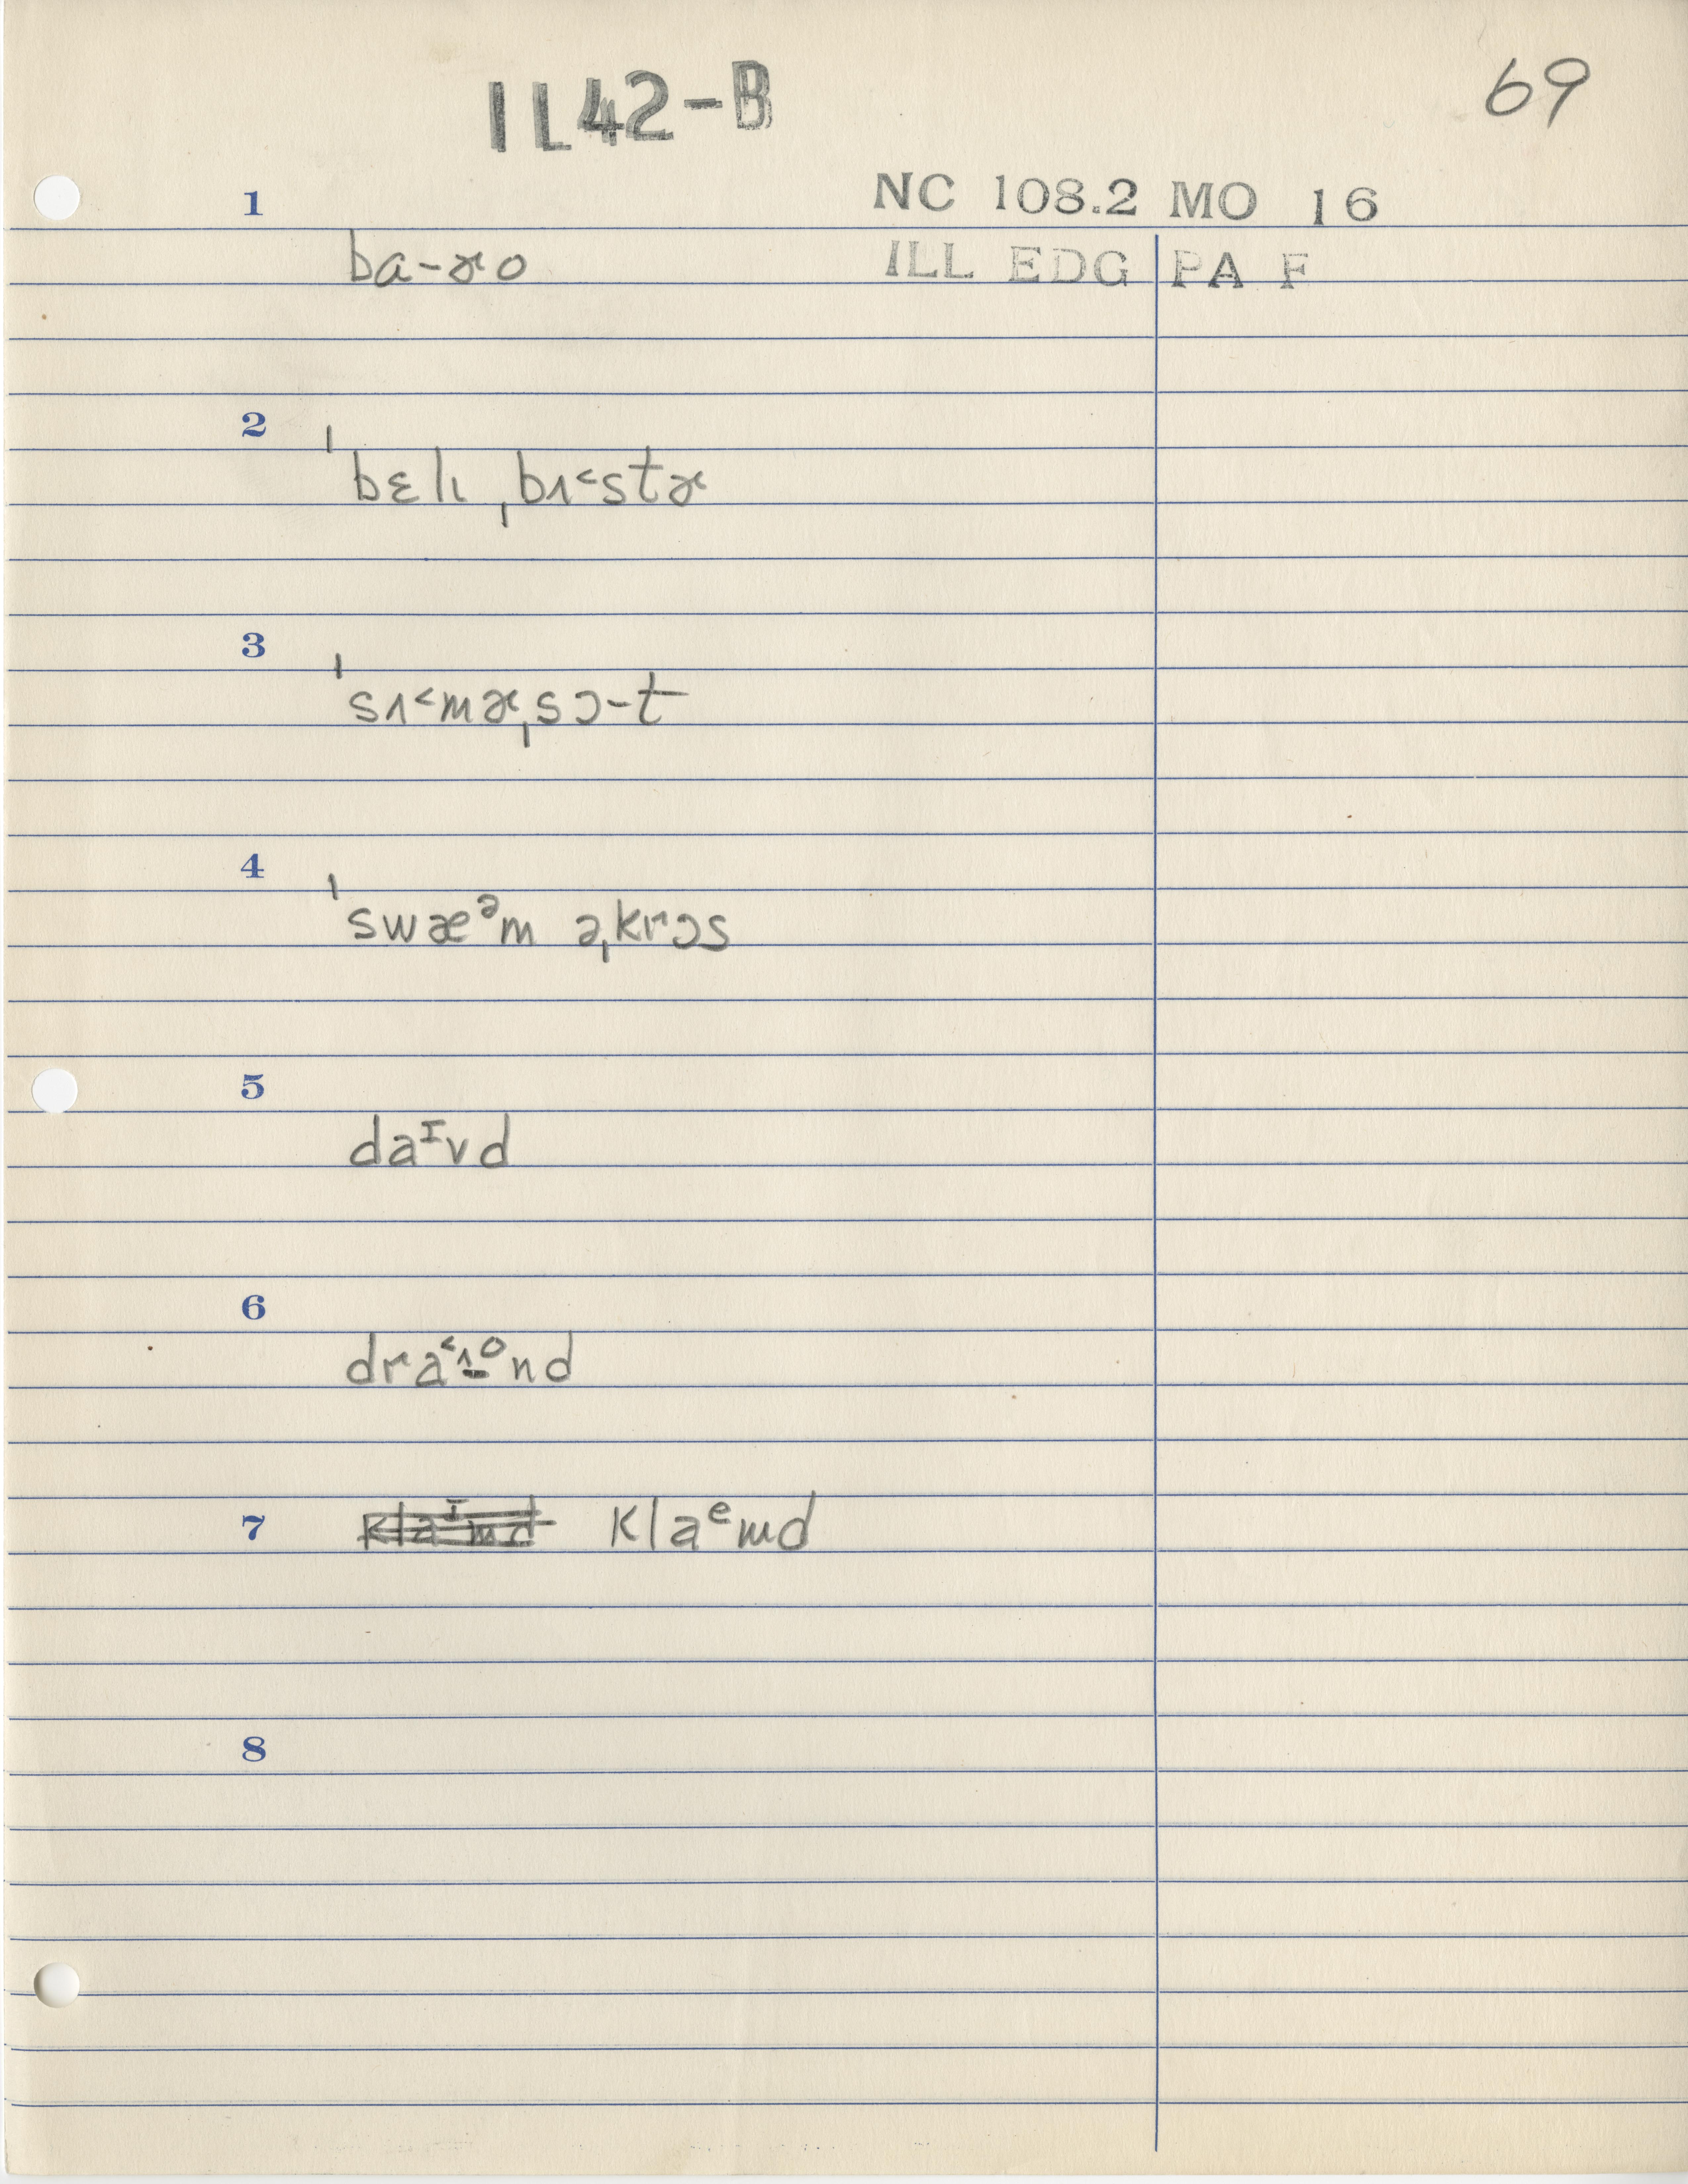 IL42-B
69
1 NC 108.2 MO 16
ba-ɚo ILL EDG PA F
2
ˈbɛlɪ ˌbʌ˂stɚ
3
ˈsʌ˂mɚˌsɔ-t
4
ˈswæᵊm əˌkrɔs
5
daᶦvd
6
dra˂ʌ̠ᵒnd
7 klaᶦmd klaᵉmd
8